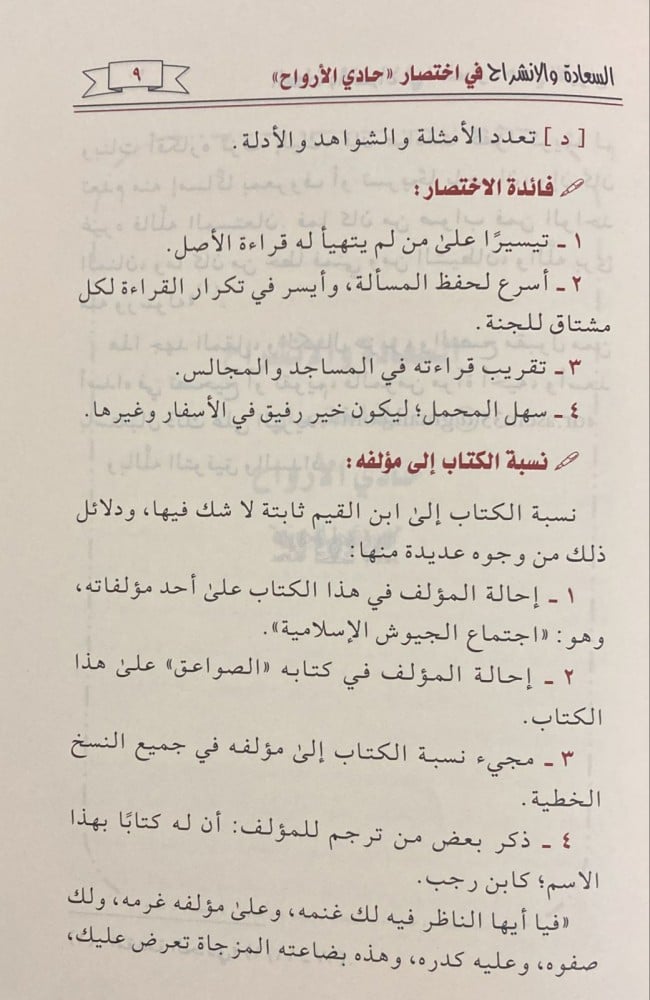 السعادة والانشراح في اختصار «حادي الأرواح»
٩
[ د ] تعدد الأمثلة والشواهد والأدلة.
فائدة الاختصار:
١ ـ تيسيرًا علىٰ من لم يتهيأ له قراءة الأصل.
٢ ـ أسرع لحفظ المسألة، وأيسر في تكرار القراءة لكل
مشتاق للجنة.
٣ ـ تقريب قراءته في المساجد والمجالس.
٤ ـ سهل المحمل؛ ليكون خير رفيق في الأسفار وغيرها.
نسبة الكتاب إلى مؤلفه:
نسبة الكتاب إلىٰ ابن القيم ثابتة لا شك فيها، ودلائل
ذلك من وجوه عديدة منها:
١ ـ إحالة المؤلف في هذا الكتاب علىٰ أحد مؤلفاته،
وهو: «اجتماع الجيوش الإسلامية».
٢ ـ إحالة المؤلف في كتابه «الصواعق» علىٰ هذا
الكتاب.
٣ ـ مجيء نسبة الكتاب إلىٰ مؤلفه في جميع النسخ
الخطية.
٤ ـ ذكر بعض من ترجم للمؤلف: أن له كتابًا بهذا
الاسم؛ كابن رجب.
«فيا أيها الناظر فيه لك غنمه، وعلىٰ مؤلفه غرمه، ولك
صفوه، وعليه كدره، وهذه بضاعته المزجاة تعرض عليك،